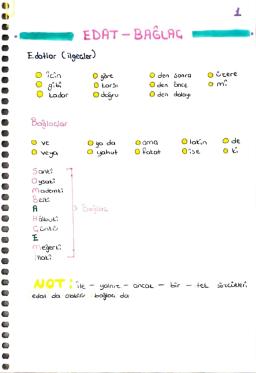 1
EDAT - BAĞLAÇ
Edatlar (ilgeçler)
için göre den sonra üzere
gibi karşı den önce mi
kadar doğru den dolayı
Bağlaçlar
ve ya da ama lakin de
veya yahut fakat ise ki
Sanki
Oysaki
Mademki
Belki
Halbuki
Çünkü
E
meğerki
Bağlaç
NOT: ile - yalnız - ancak - bir - tek sözcükleri
edat da olabilir bağlaç da